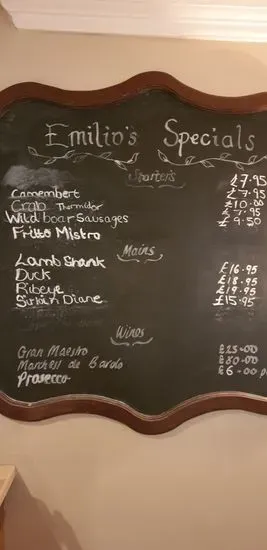 Emilio's Specials
Starters
Camembert
Crab Thermidor
Wild boar Sausages
Fritto Mistro
£7.95
£7.95
£10.00
£7.95
£9.50
Mains
Lamb Shank £16.95
Duck £18.95
Ribeye £19.95
Sirloin Diane £15.95
Wines
Gran Maestro £25.00
Marchesi de Bardo £80.00
Prosecco £6.00 p